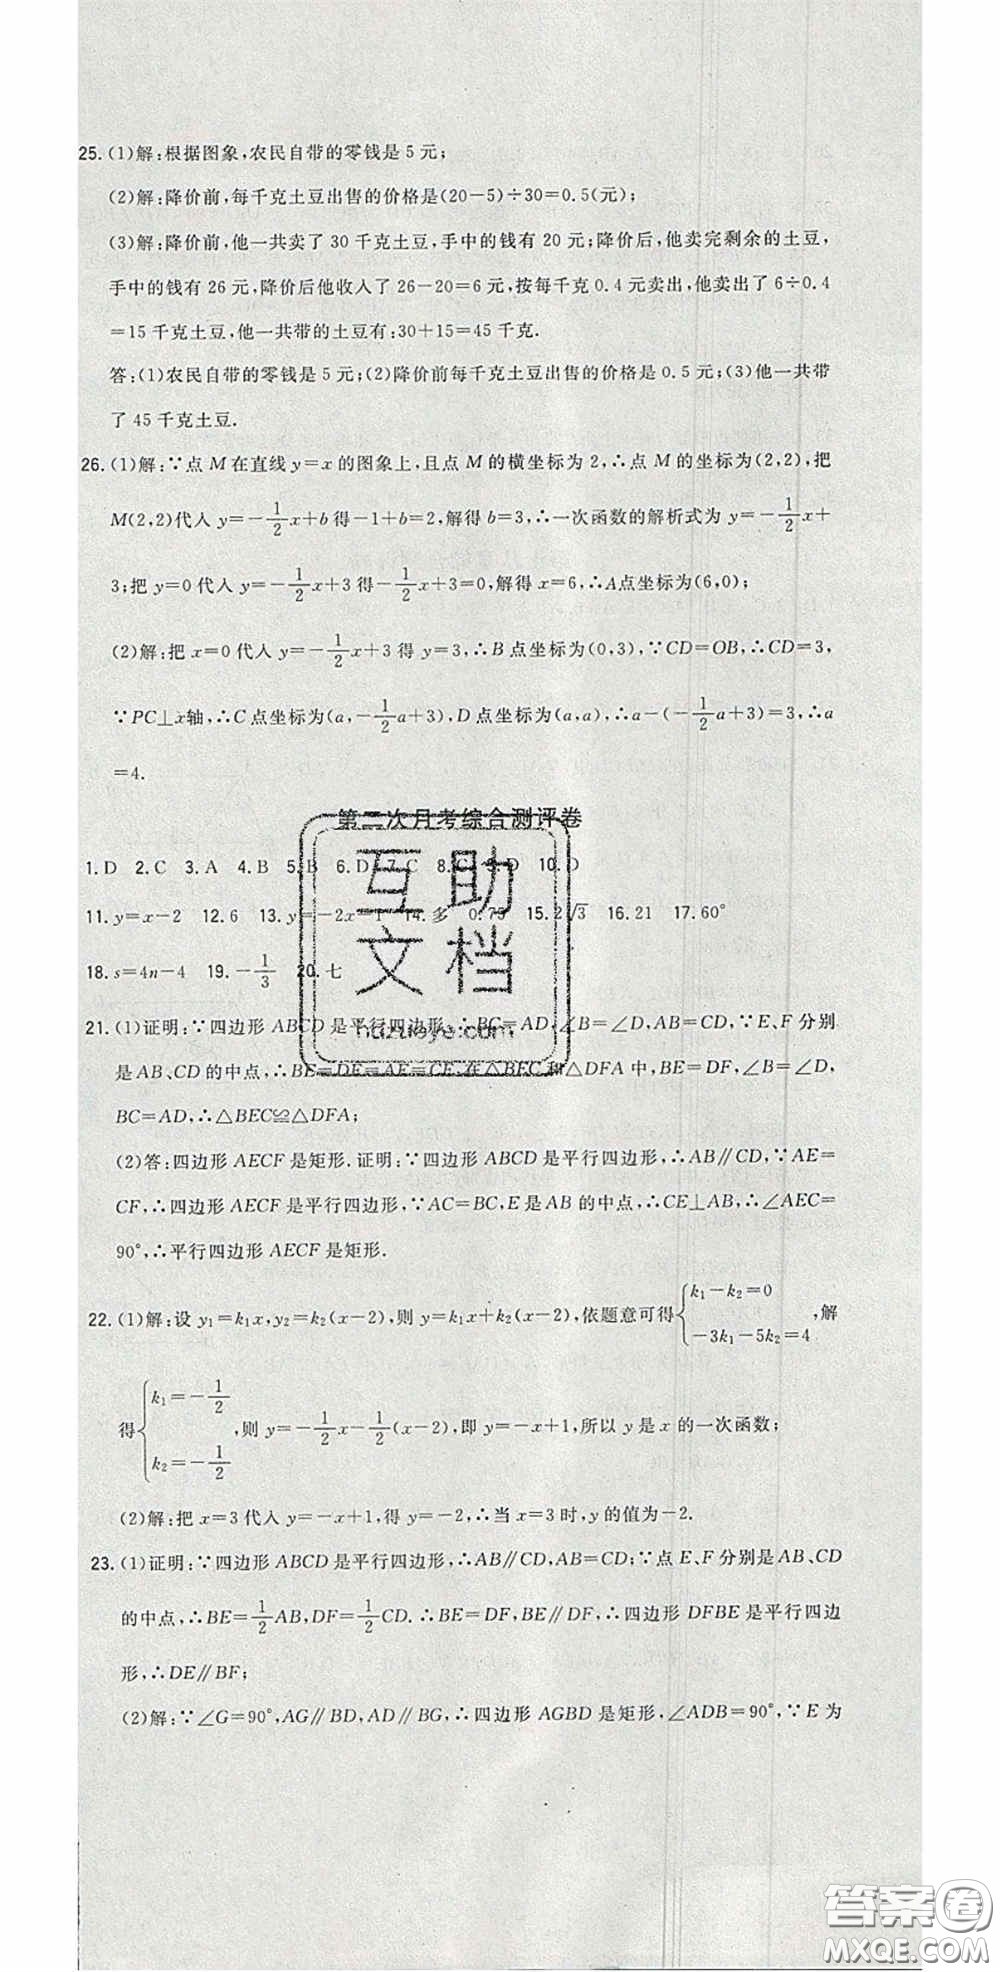 25. (1)解:根据图象,农民自带的零钱是5元;
(2)解:降价前,每千克土豆出售的价格是(20-5)÷30=0.5(元);
(3)解:降价前,他一共卖了30千克土豆,手中的钱有20元;降价后,他卖完剩余的土豆,
手中的钱有26元,降价后他收入了26-20=6元,按每千克0.4元卖出,他共卖出了6÷0.4
=15千克土豆,他一共带的土豆有:30+15=45千克.
答:(1)农民自带的零钱是5元;(2)降价前每千克土豆出售的价格是0.5元;(3)他一共带
了45千克土豆.
26. (1)解:∵点M在直线y=x的图象上,且点M的横坐标为2,∴点M的坐标为(2,2),把
M(2,2)代入y=-1/2x+b得-1+b=2,解得b=3,∴一次函数的解析式为y=-1/2x+
3;把y=0代入y=-1/2x+3得-1/2x+3=0,解得x=6,∴A点坐标为(6,0);
(2)解:把x=0代入y=-1/2x+3得y=3,∴B点坐标为(0,3),∵CD=OB,∴CD=3,
∵PC⊥x轴,∴C点坐标为(a,-1/2a+3),D点坐标为(a,a),∴a-(-1/2a+3)=3,∴a
=4.
第二次月考综合测评卷
1.D 2.C 3.A 4.B 5.B 6.D 7.C 8.C 9.D 10.D
11.y=x-2 12.6 13.y=-2x-1 14.多 0.75 15.2√3 16.21 17.60°
18.s=4n-4 19.-1/3 20.七
互助
文档
huzuoye.com
21. (1)证明:∵四边形ABCD是平行四边形,∴BC=AD,∠B=∠D,AB=CD,∵E、F分别
是AB、CD的中点,∴BE=DF=AE=CF,在△BEC和△DFA中,BE=DF,∠B=∠D,
BC=AD,∴△BEC≌△DFA;
(2)答:四边形AECF是矩形.证明:∵四边形ABCD是平行四边形,∴AB∥CD,∵AE=
CF,∴四边形AECF是平行四边形,∵AC=BC,E是AB的中点,∴CE⊥AB,∴∠AEC=
90°,∴平行四边形AECF是矩形.
22. (1)解:设y₁=k₁x,y₂=k₂(x-2),则y=k₁x+k₂(x-2),依题意可得{k₁-k₂=0 -3k₁-5k₂=4,解
得{k₁=-1/2 k₂=-1/2,则y=-1/2x-1/2(x-2),即y=-x+1,所以y是x的一次函数;
(2)解:把x=3代入y=-x+1,得y=-2,∴当x=3时,y的值为-2.
23. (1)证明:∵四边形ABCD是平行四边形,∴AB∥CD,AB=CD;∵点E、F分别是AB、CD
的中点,∴BE=1/2AB,DF=1/2CD.∴BE=DF,BE∥DF,∴四边形DFBE是平行四边
形,∴DE∥BF;
(2)解:∵∠G=90°,AG∥BD,AD∥BG,∴四边形AGBD是矩形,∠ADB=90°,∵E为
答案卷
MXQE.COM